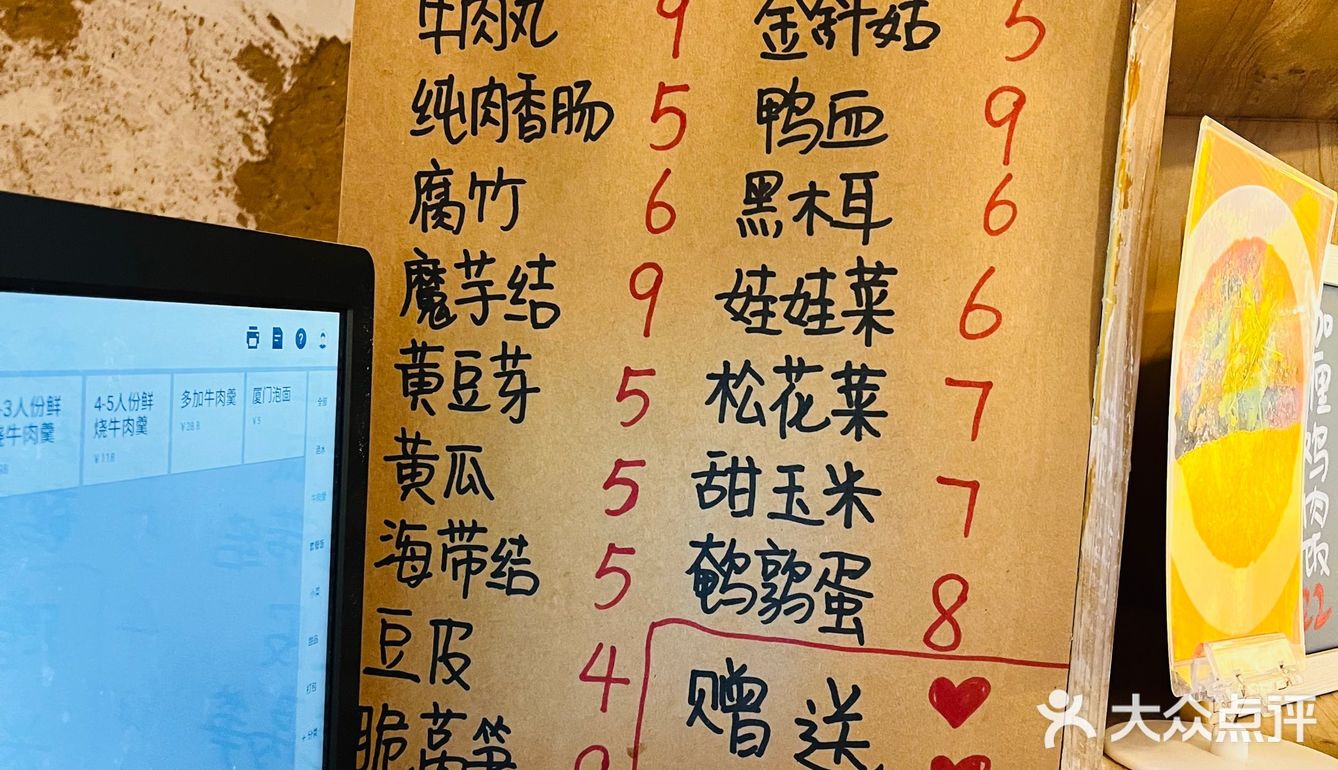 牛肉丸 9
纯肉香肠 5
腐竹 6
魔芋结 9
黄豆芽 5
黄瓜 5
海带结 5
豆皮 4
脆莴笋
金针菇 5
鸭血 9
黑木耳 6
娃娃菜 6
松花菜 7
甜玉米 7
鹌鹑蛋 8
赠送
-3人份鲜
烧牛肉羹
4-5人份鲜
烧牛肉羹
¥118
多加牛肉羹
厦门泡面
¥5
咖喱鸡肉饭
22
大众点评